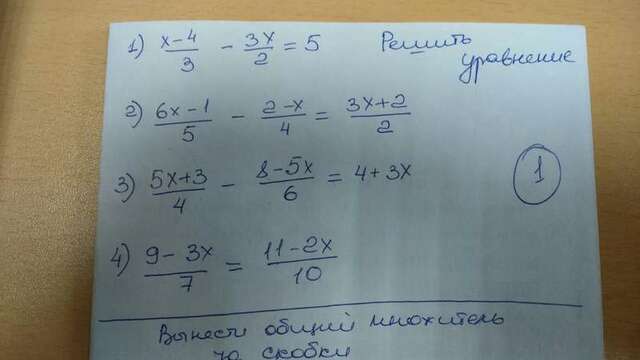 1) x-4/3 - 3x/2 = 5 Решить
уравнение
2) 6x-1/5 - 2-x/4 = 3x+2/2
3) 5x+3/4 - 8-5x/6 = 4+3x
1
4) 9-3x/7 = 11-2x/10
Вынести общий множитель
за скобки